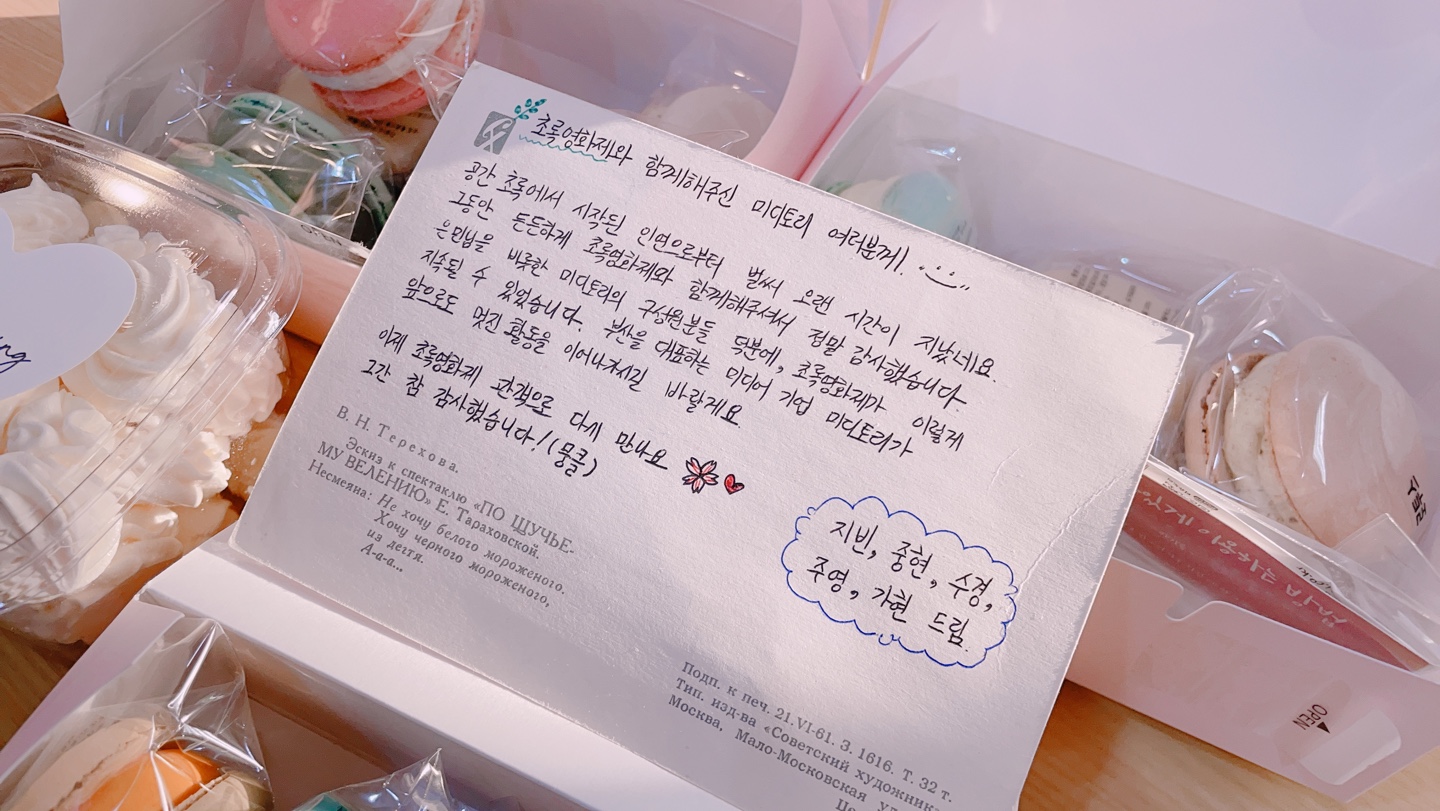 초록영화제와 함께해주신 미디토리 여러분께!
공간 초록에서 시작된 인연으로부터 벌써 오랜 시간이 지났네요.
그동안 든든하게 초록영화제와 함께해주셔서 정말 감사했습니다.
은민님을 비롯한 미디토리의 구성원분들 덕분에, 초록영화제가 이렇게
지속될 수 있었습니다. 부산을 대표하는 미디어 기업 미디토리가
앞으로도 멋진 활동을 이어나가시길 바랄게요
이제 초록영화제 관객으로 다시 만나요
그간 참 감사했습니다! (뭉클)
지빈, 중현, 수경,
주영, 가현 드림.
В. Н. Терехова.
Эскиз к спектаклю «ПО ЩУЧЬЕ-
МУ ВЕЛЕНИЮ» Е. Тараховской.
Несмеяна: Не хочу белого мороженого.
Хочу черного мороженого,
из дегтя.
А-а-а...
Подп. к печ. 21.VI-61. З. 1616. Т. 32 т.
Тип. изд-ва «Советский художник»
Москва, Мало-Московская
OPEN
있게 이용하는 방법
OPEN